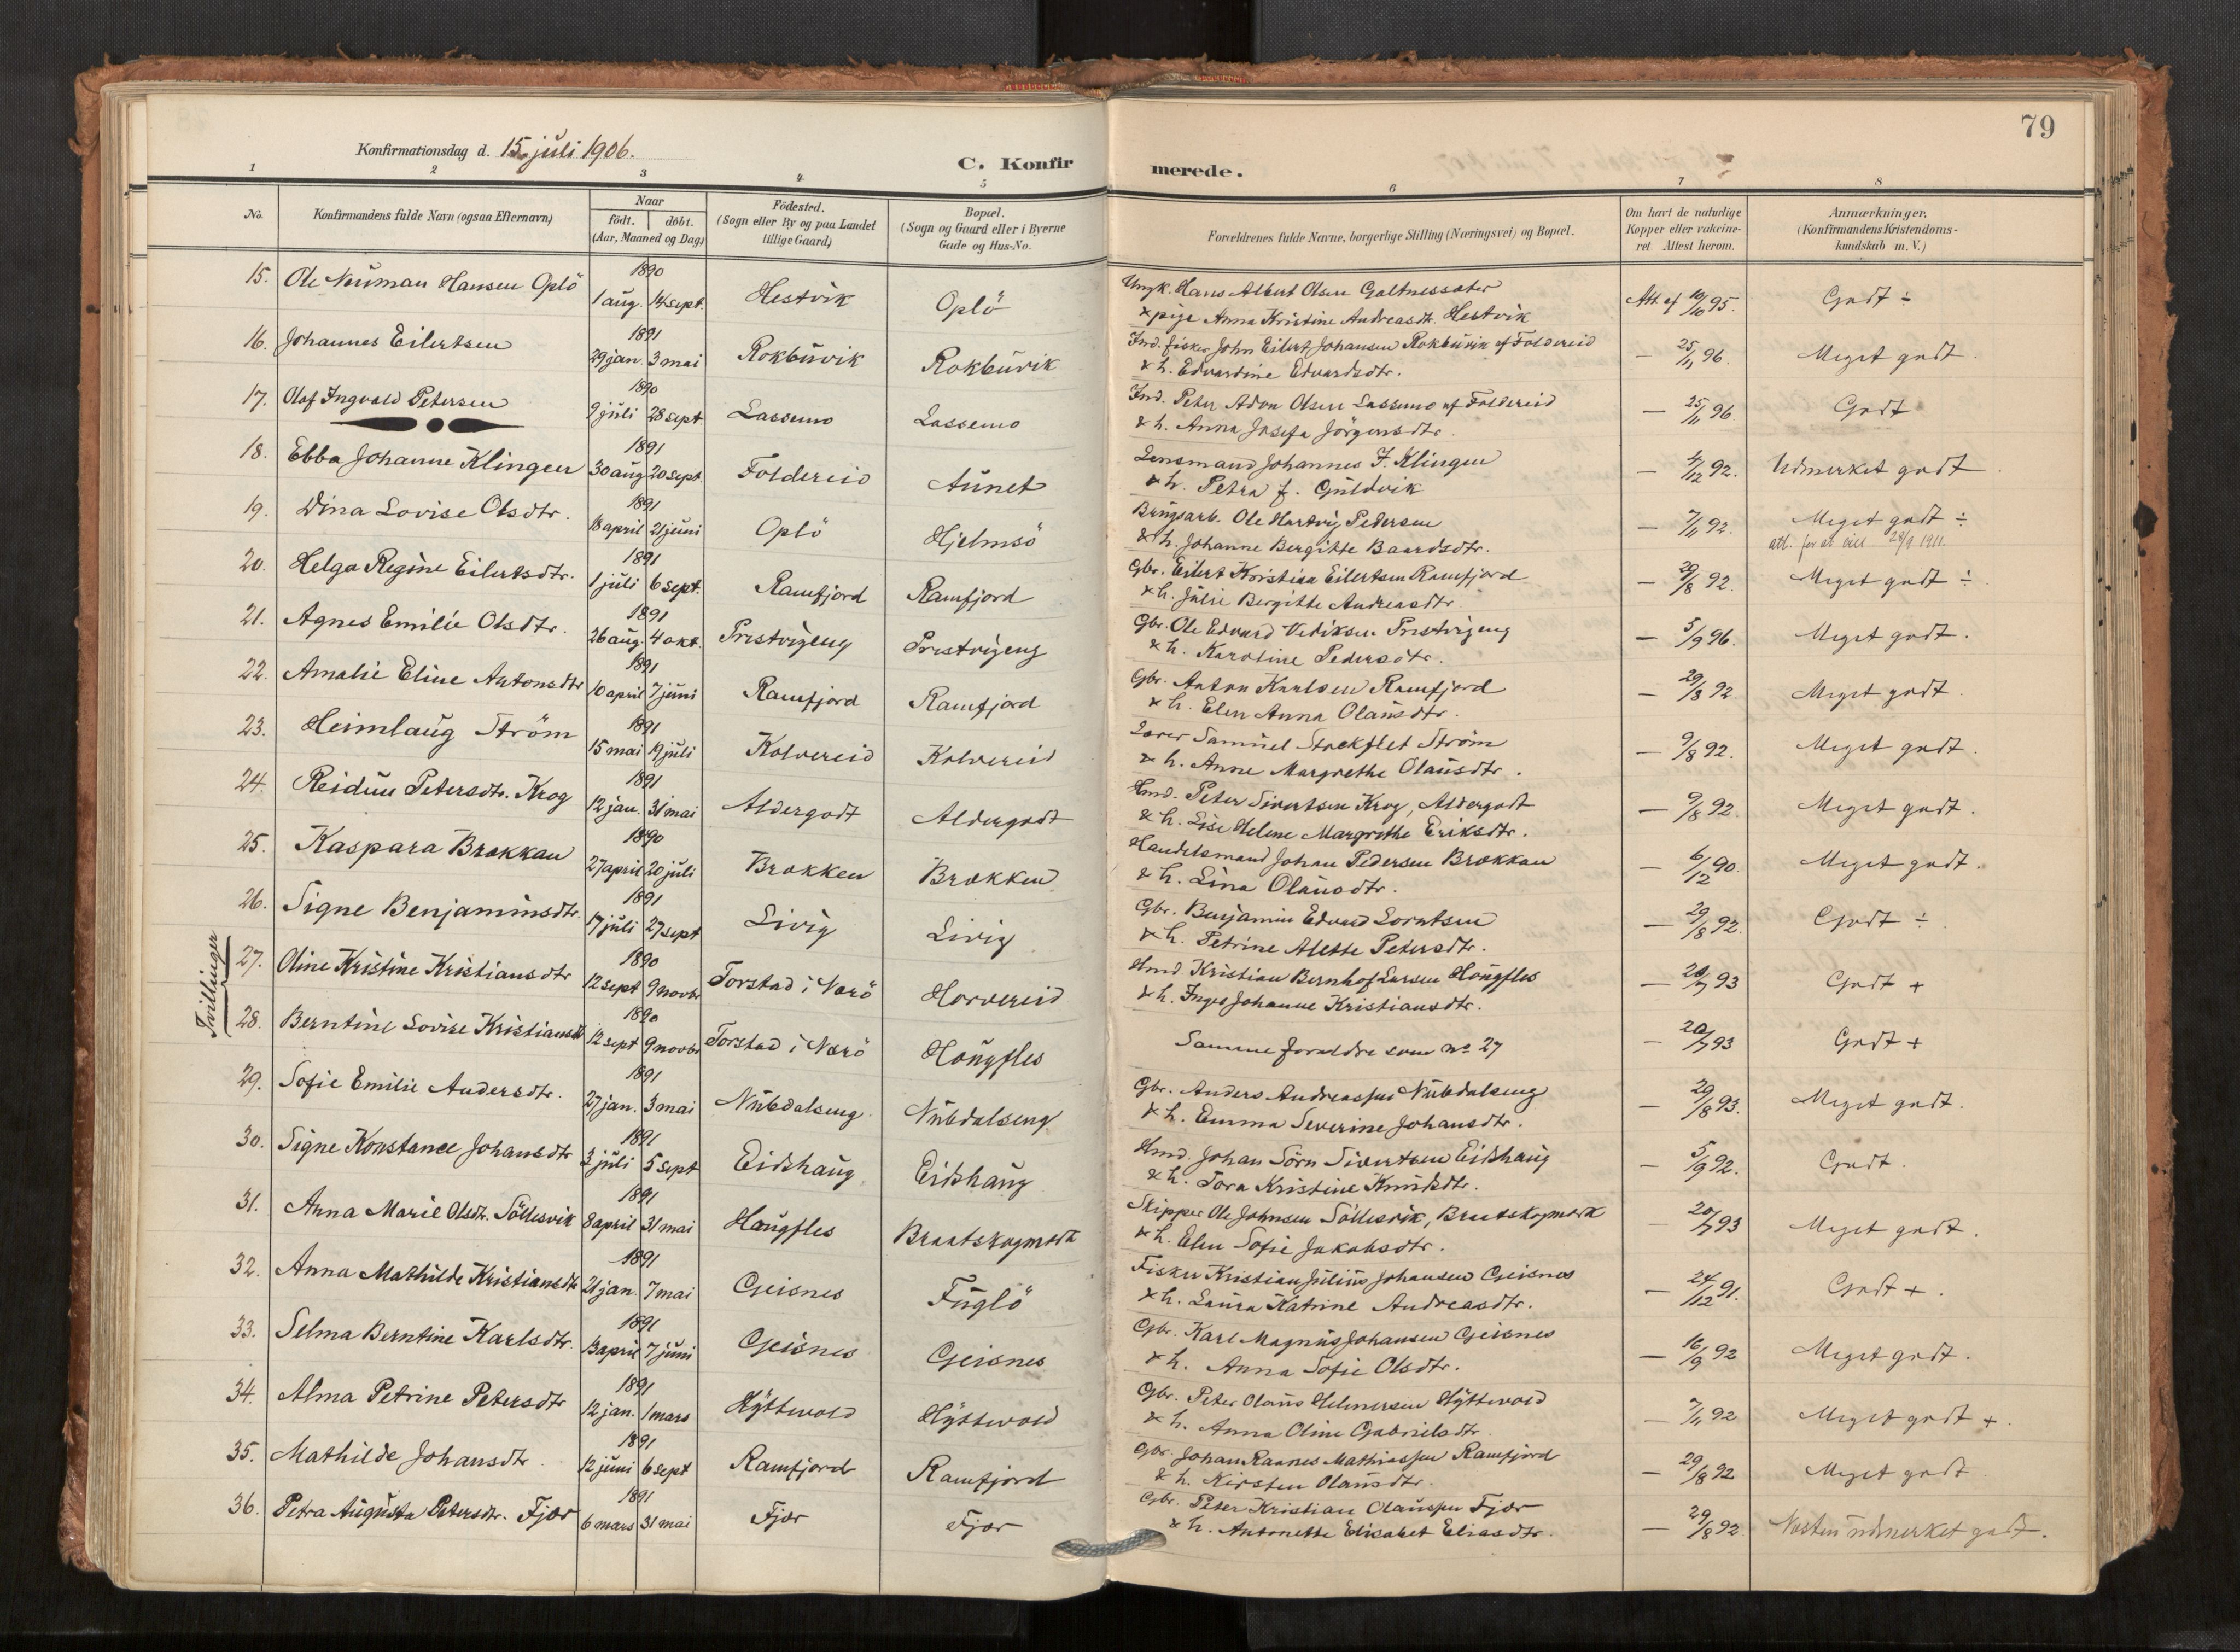 79
Konfirmationsdag d. 15 juli 1906.
C. Konfir merede.
1 2 3 4 5 6 7 8
No.
Konfirmandens fulde Navn (ogsaa Efternavn)
Naar
födt. döbt.
(Aar, Maaned og Dag)
Födested.
(Sogn eller By og paa Landet
tillige Gaard)
Bopæl.
(Sogn og Gaard eller i Byerne
Gade og Hus-No.
Forældrenes fulde Navne, borgerlige Stilling (Næringsvei) og Bopæl.
Om havt de naturlige
Kopper eller vakcine-
ret Attest herom.
Anmærkninger.
(Konfirmandens Kristendoms-
kundskab m. V.)
15. Ole Neuman Hansen Oplö 1890 1 aug. 14 sept. Hestvik Oplö Ungk. Hans Albert Olsen Galtnessæter Att. af 10/10 95. Godt ÷
& pige Anna Kristine Andreasdtr. Hestvik
16. Johannes Eilertsen 1891 29 jan. 3 mai Rokbürvik Rokbürvik Ind. fisker John Eilert Johansen Rokbürvik af Foldereid — 25/11 96 Meget godt.
& h. Edvardine Edvardsdtr.
17. Olaf Ingvald Petersen 1890 9 juli 28 sept. Lassemo Lassemo Ind. Peter Adon Olsen Lassemo af Foldereid — 25/11 96 Godt
& h. Anna Josefa Jörgensdtr.
18. Ebba Johanne Klingen 1891 30 aug 20 sept. Foldereid Aunet Lensmand Johannes F. Klingen — 4/12 92. Udmerket godt.
& h. Petra f. Guldvik
19. Dina Lovise Olsdtr. 1891 18 april 21 juni Oplö Hjelmsö Brugsarb. Ole Hartvig Pedersen — 7/11 92. Meget godt ÷
& h. Johanne Bergitte Baardsdtr. att. 28/9 1911.
20. Helga Regine Eilertsdtr. 1891 1 juli 6 sept. Ramfjord Ramfjord Gbr. Eilert Kristian Eilertsen Ramfjord — 29/8 92. Meget godt ÷.
& h. Julie Bergitte Andreasdtr.
21. Agnes Emilie Olsdtr. 1891 26 aug. 4 okt. Prestvigeng Prestvigeng Gbr. Ole Edvard Vediksen Prestvigeng — 5/9 96. Meget godt.
& h. Karoline Pedersdtr.
22. Amalie Eline Antonsdtr 1891 10 april 7 juni Ramfjord Ramfjord Gbr. Anton Karlsen Ramfjord — 29/8 92. Meget godt.
& h. Elen Anna Olausdtr.
23. Heimlaug Ström 1891 15 mai 19 juli Kolvereid Kolvereid Lærer Samuel Stockflet Ström — 9/8 92. Meget godt.
& h. Anne Margrethe Olausdtr.
24. Reidun Petersdtr. Krog 1891 12 jan. 31 mai Aldergodt Aldergodt Hmd. Peter Sivertsen Krog, Aldergodt — 9/8 92. Meget godt.
& h. Lise Helene Margrethe Eriksdtr.
25. Kaspara Brækkan 1890 27 april 20 juli Brækken Brækken Handelsmand Johan Pedersen Brækkan — 6/12 90. Meget godt.
& h. Lina Olausdtr.
26. Signe Benjaminsdtr. 1891 17 juli 27 sept Livig Livig Gbr. Benjamin Edvard Lorntsen — 29/8 92. Godt ÷.
& h. Petrine Alette Petersdtr.
Tvillinger
27. Oline Kristine Kristiansdtr 1890 12 sept 9 novbr Torstad i Nærö Horvereid Hmd. Kristian Bernhof Larsen Haugfles — 20/7 93 Godt +
& h. Inger Johanne Kristiansdtr.
28. Berntine Lovise Kristiansdtr 1890 12 sept 9 novbr Torstad i Nærö Haugfles Samme forældre som no 27 — 20/7 93 Godt +
29. Sofie Emilie Andersdtr. 1891 27 jan. 3 mai Nubdalseng Nubdalseng Gbr. Anders Andreassen Nubdalseng — 29/8 93. Meget godt.
& h. Emma Severine Johansdtr.
30. Signe Konstance Johansdtr 1891 3 juli 5 sept Eidshaug Eidshaug Hmd. Johan Sörn Sivertsen Eidshaug — 5/9 92. Godt.
& h. Tora Kristine Knudsdtr.
31. Anna Marie Olsdtr. Söllesvik 1891 8 april 31 mai Haugfles Braatskogmark Skipper Ole Johnsen Söllesvik, Braatskogmark — 20/7 93 Meget godt.
& h. Elen Sofie Jakobsdtr.
32. Anna Mathilde Kristiansdtr 1891 21 jan. 7 mai Geisnes Fuglö Fisker Kristian Julius Johansen Geisnes — 24/12 91. Godt +.
& h. Laura Katrine Andreasdtr.
33. Selma Berntine Karlsdtr. 1891 13 april 7 juni Geisnes Geisnes Gbr. Karl Magnus Johansen Geisnes — 16/9 92 Meget godt.
& h. Anna Sofie Olsdtr.
34. Alma Petrine Petersdtr 1891 12 jan. 1 mars Hyttevold Hyttevold Gbr. Peter Olaus Helmersen Hyttevold — 7/11 92 Meget godt +.
& h. Anna Oline Gabrielsdtr
35. Mathilde Johansdtr. 1891 12 juni 6 sept Ramfjord Ramfjord Gbr. Johan Raanes Mathiassen Ramfjord — 29/8 92 Meget godt
& h. Kirsten Olausdtr.
36. Petra Augusta Petersdtr. Fjær 1891 6 mars 31 mai Fjær Fjær Gbr. Peter Kristian Olaussen Fjær — 29/8 92. Næsten udmerket godt.
& h. Antonette Elisabet Eliasdtr.